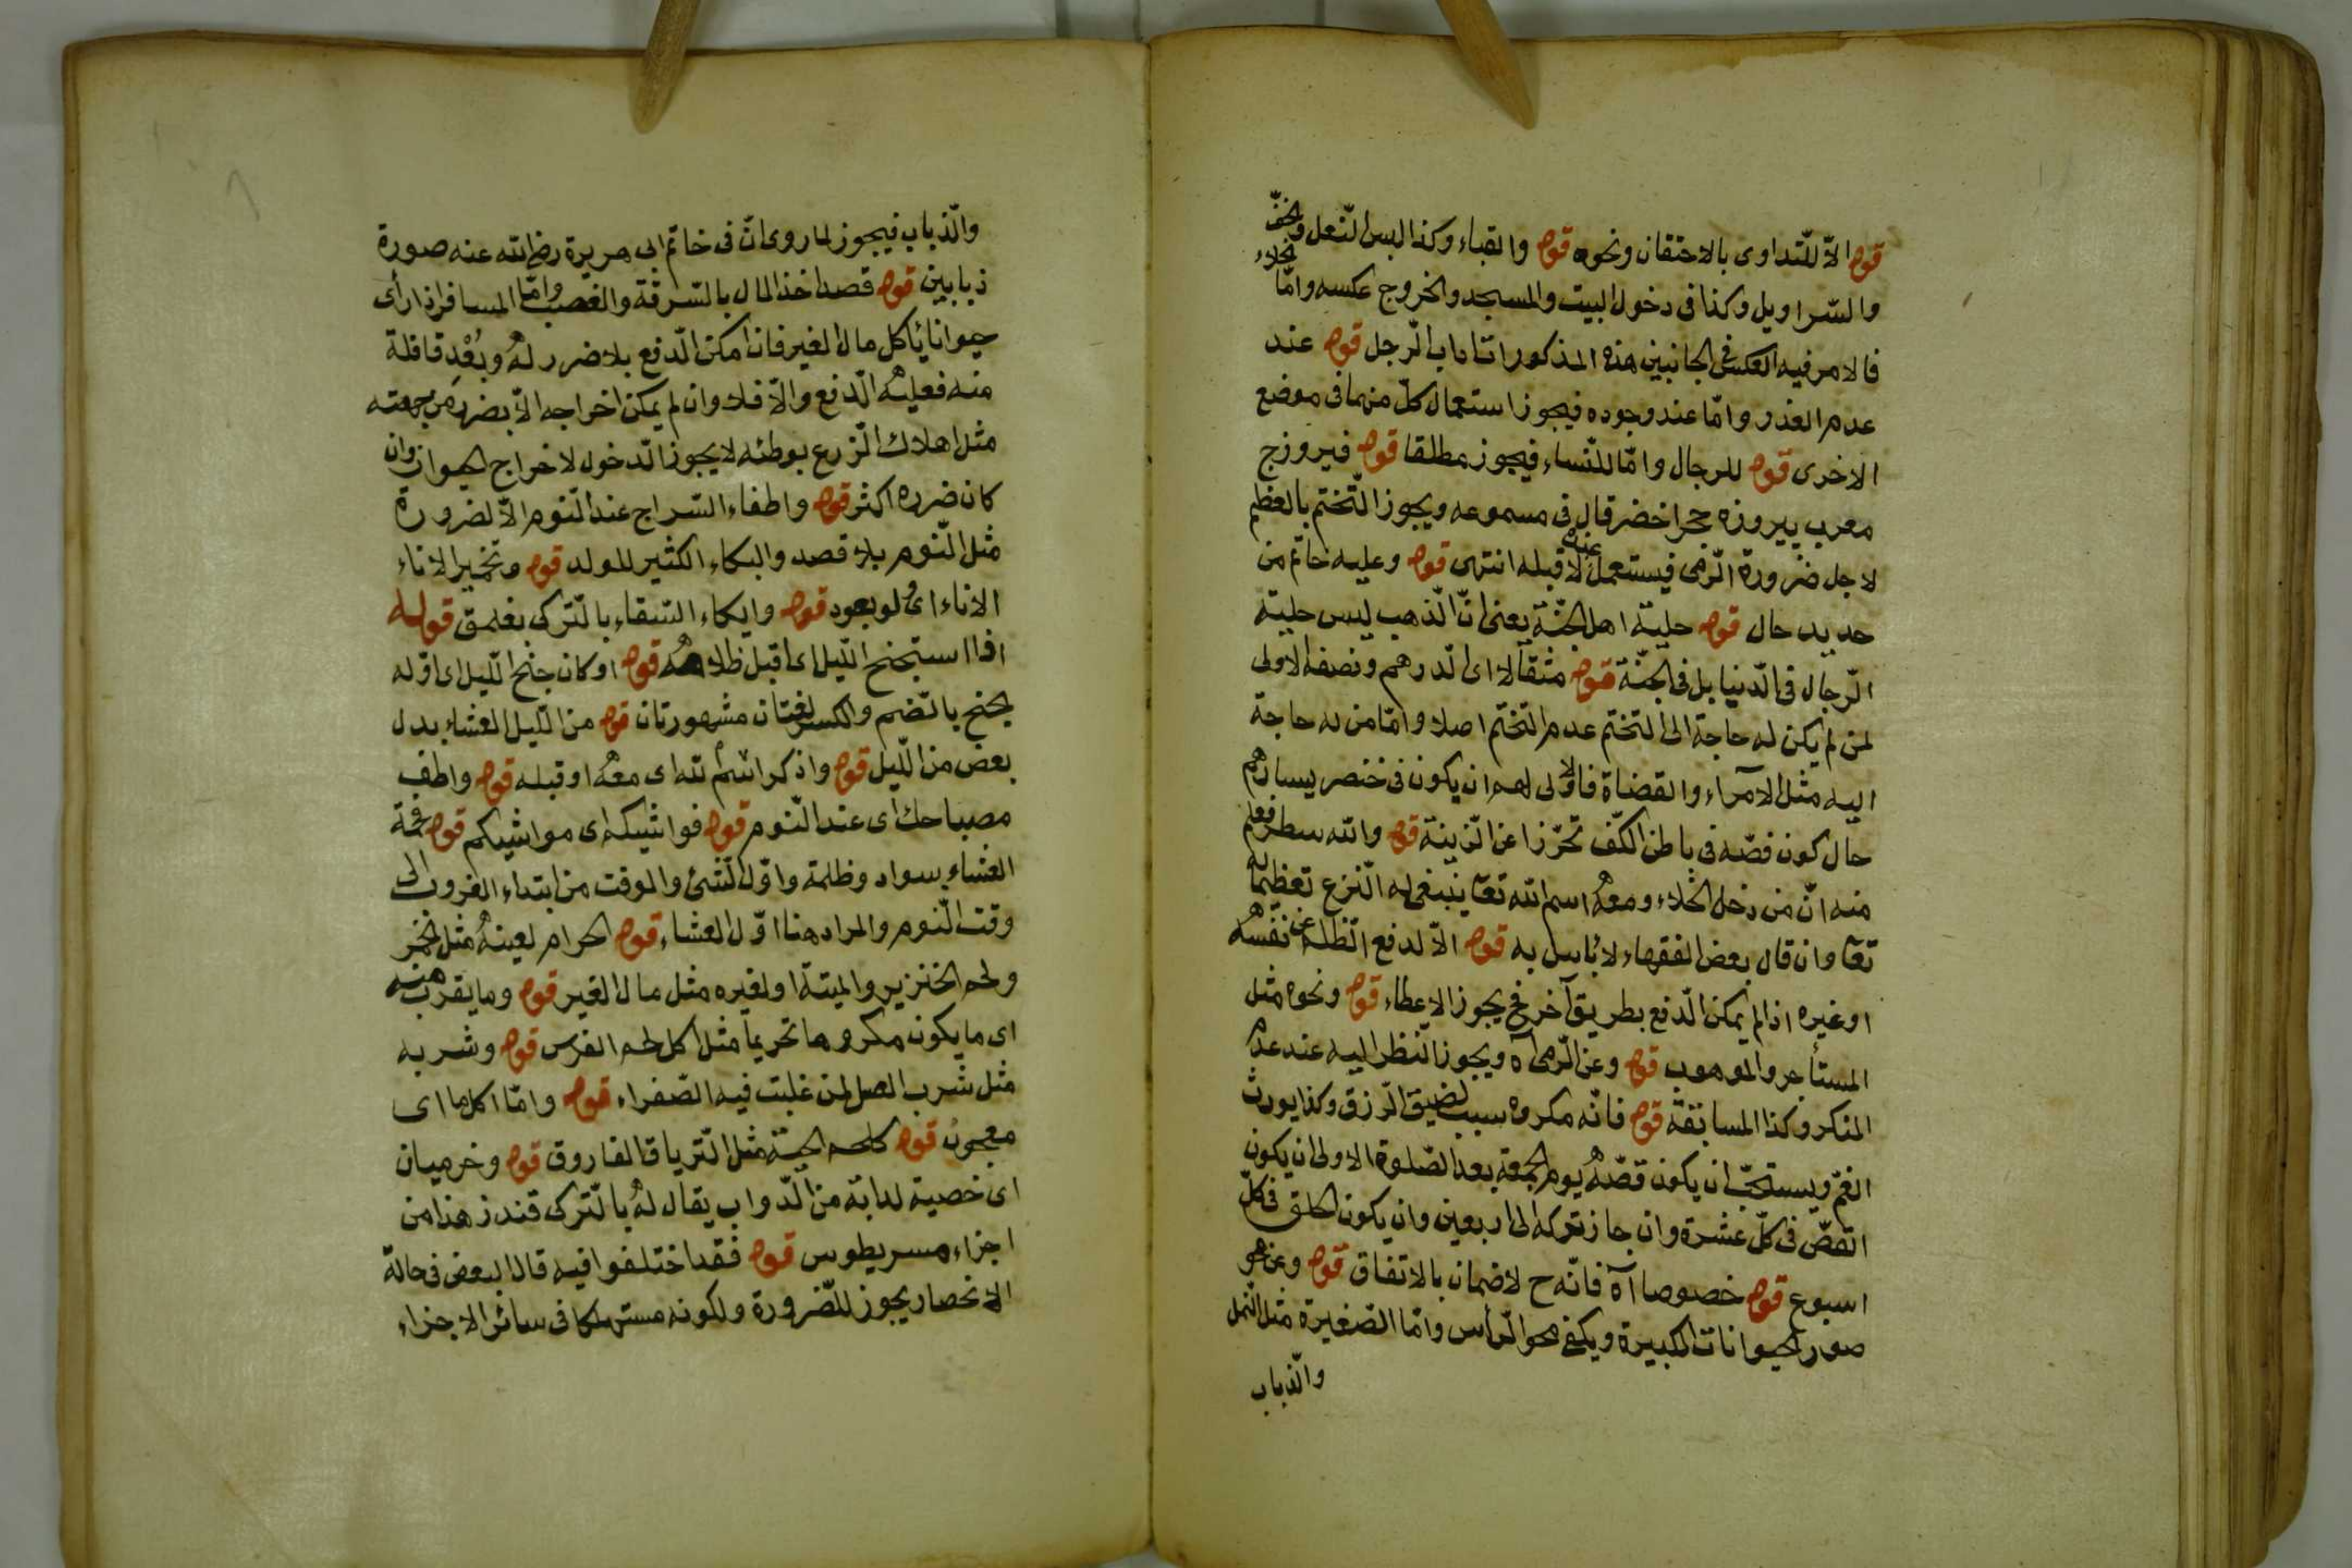 قوله الاّ للتّداوى بالاحتقان ونحوه قوله والقباء وكذا لبس النّعل والخفّ
والسّراويل وكذا فى دخول البيت والمسجد والخروج عكسه وامّا الخلاء
فالامر فيه العكس فى الجانبين هذه المذكورات اداب الرّجل قوله عند
عدم العذر وامّا عند وجوده فيجوز استعمال كلّ منهما فى موضع
الاخرى قوله للرجال وامّا للنّساء فيجوز مطلقا قوله فيروزج
معرب پيروزه حجر اخضر قال فى مسموعه ويجوز التّختم بالعظم
لاجل ضرورة الرّمى فيستعمل عنده لا قبله انتهى قوله وعليه خاتم من
حديد حال قوله حلية اهل الجنّة يعنى انّ الذّهب ليس حلية
الرّجال فى الدّنيا بل فى الجنّة قوله مثقالا اى الدّرهم ونصفه الاولى
لمن لم يكن له حاجة الى التختم عدم التّختم اصلا وامّا من له حاجة
اليه مثل الامرآء والقضاة فالاولى لهم ان يكون فى خنصر يسارهم
حال كون فصّه فى باطن الكفّ تحرّزا عن الزّينة قوله والله سطر فعلم
منه انّ من دخل الخلاء ومعه اسم الله تعا ينبغى له النّزع تعظيما له
تعا وان قال بعض الفقهاء لا بأس به قوله الاّ لدفع الظّلم عن نفسه
او غيره اذا لم يمكن الدّفع بطريق آخر فح يجوز الاعطاء قوله ونحوه مثل
المستأجر والموهوب قوله وعن الرّمى اه ويجوز النّظر اليه عند عدم
المنكر وكذا المسابقة قوله فانّه مكروه سبب لضيق الرّزق وكذا يورث
الغمّ ويستحبّ ان يكون قصّه يوم الجمعة بعد الصّلوة الاولى ان يكون
القصّ فى كلّ عشرة وان جاز تركه الى اربعين وان يكون الحلق فى كلّ
اسبوع قوله خصوصا آه فانّه ح لا ضمان بالاتفاق قوله وعن هو
صور الحيوانات الكبيرة ويكفى محو الرّأس وامّا الصّغيرة مثل النّمل
والذّباب
والذّباب فيجوز لما روى انّ فى خاتم ابى هريرة رضى الله عنه صورة
ذبابين قوله قصد اخذ المال بالسّرقة والغصب وامّا المسافر اذا رأى
حيوانا يأكل مال الغير فان امكن الدّفع بلا ضرر له وبُعْد قافلة
منه فعليه الدّفع والاّ فلا وان لم يمكن اخراجه الاّ بضرر من جهته
مثل اهلاك الزّرع بوطئه لا يجوز الدّخول لاخراج الحيوان وان
كان ضرره اكثر قوله واطفاء السّراج عند النّوم الاّ لضرورة
مثل النّوم بلا قصد والبكاء الكثير للولد قوله وتخمير الاناء
الاناء اى ولو بعود قوله وايكاء السّقاء بالتّركى بغلمق قوله
اذا استجنح اللّيل اى اقبل ظلامه قوله او كان جنح اللّيل اى اوّله
بجنح بالضّم والكسر لغتان مشهورتان قوله من اللّيل العشاء بدل
بعض من اللّيل قوله واذكر اسم الله اى معه او قبله قوله واطف
مصباحك اى عند النّوم قوله فواشيكم اى مواشيكم قوله فحمة
العشاء سواد وظلمة واوّل الشّئ والوقت من ابتداء الغروب الى
وقت النّوم والمراد هنا اوّل العشاء قوله الحرام لعينه مثل الخمر
ولحم الخنزير والميتة او لغيره مثل مال الغير قوله وما يقرب منه
اى ما يكون مكروها تحريما مثل اكل لحم الفرس قوله وشربه
مثل شرب العسل لمن غلبت فيه الصّفراء قوله وامّا اكل ما اى
معجون قوله كلحم الحيّة مثل التّرياق الفاروق قوله وخرميان
اى خصية لدابة من الدّواب يقال له بالتّركى قندز هذا من
اجزاء مسريطوس قوله فقد اختلفوا فيه قال البعض فى حالة
الانحصار يجوز للضّرورة ولكونه مستهلكا فى سائر الاجزاء